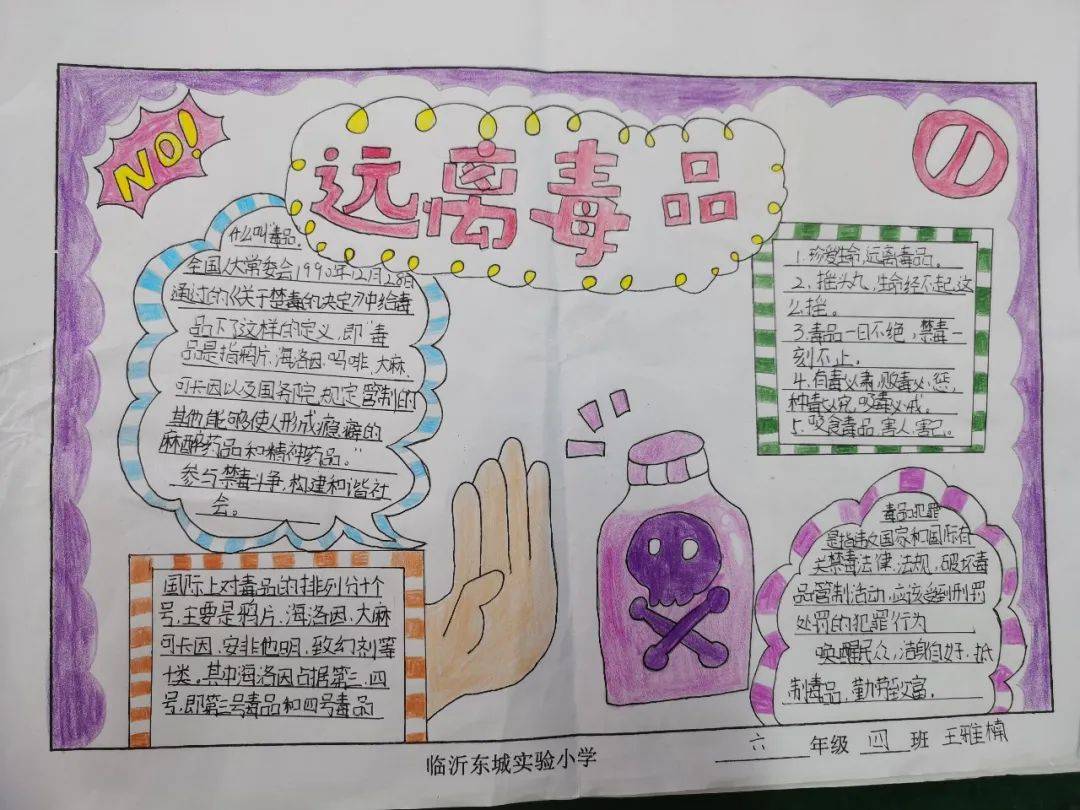 NO!
远离毒品
什么叫毒品。
全国人大常委会1990年12月28日
通过的《关于禁毒的决定》中给毒
品下了这样的定义,即“毒
品是指鸦片、海洛因、吗啡、大麻、
可卡因以及国务院规定管制的
其他能够使人形成瘾癖的
麻醉药品和精神药品。”
参与禁毒斗争,构建和谐社
会。
1、珍爱生命,远离毒品。
2、摇头丸,生命经不起这
么摇。
3.毒品一日不绝,禁毒一
刻不止。
4.有毒必肃,贩毒必惩,
种毒必究,吸毒必戒。
5、吸食毒品,害人、害己。
国际上对毒品的排列分十个
号,主要是鸦片、海洛因、大麻
可卡因、安非他明、致幻剂等
十类,其中海洛因占据第三、四
号,即第三号毒品和四号毒品
毒品犯罪
是指违反国家和国际有
关禁毒法律、法规,破坏毒
品管制活动,应该受到刑罚
处罚的犯罪行为
唤醒民众,洁身自好,抵
制毒品,勤劳致富。
临沂东城实验小学
六年级四班王雅楠